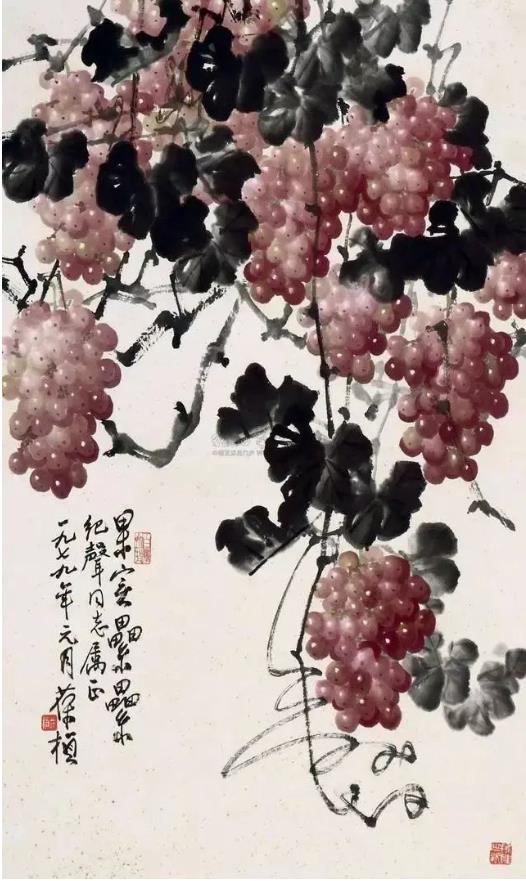 果實纍纍
紀聲同志属正
一九七九年元月葆楨